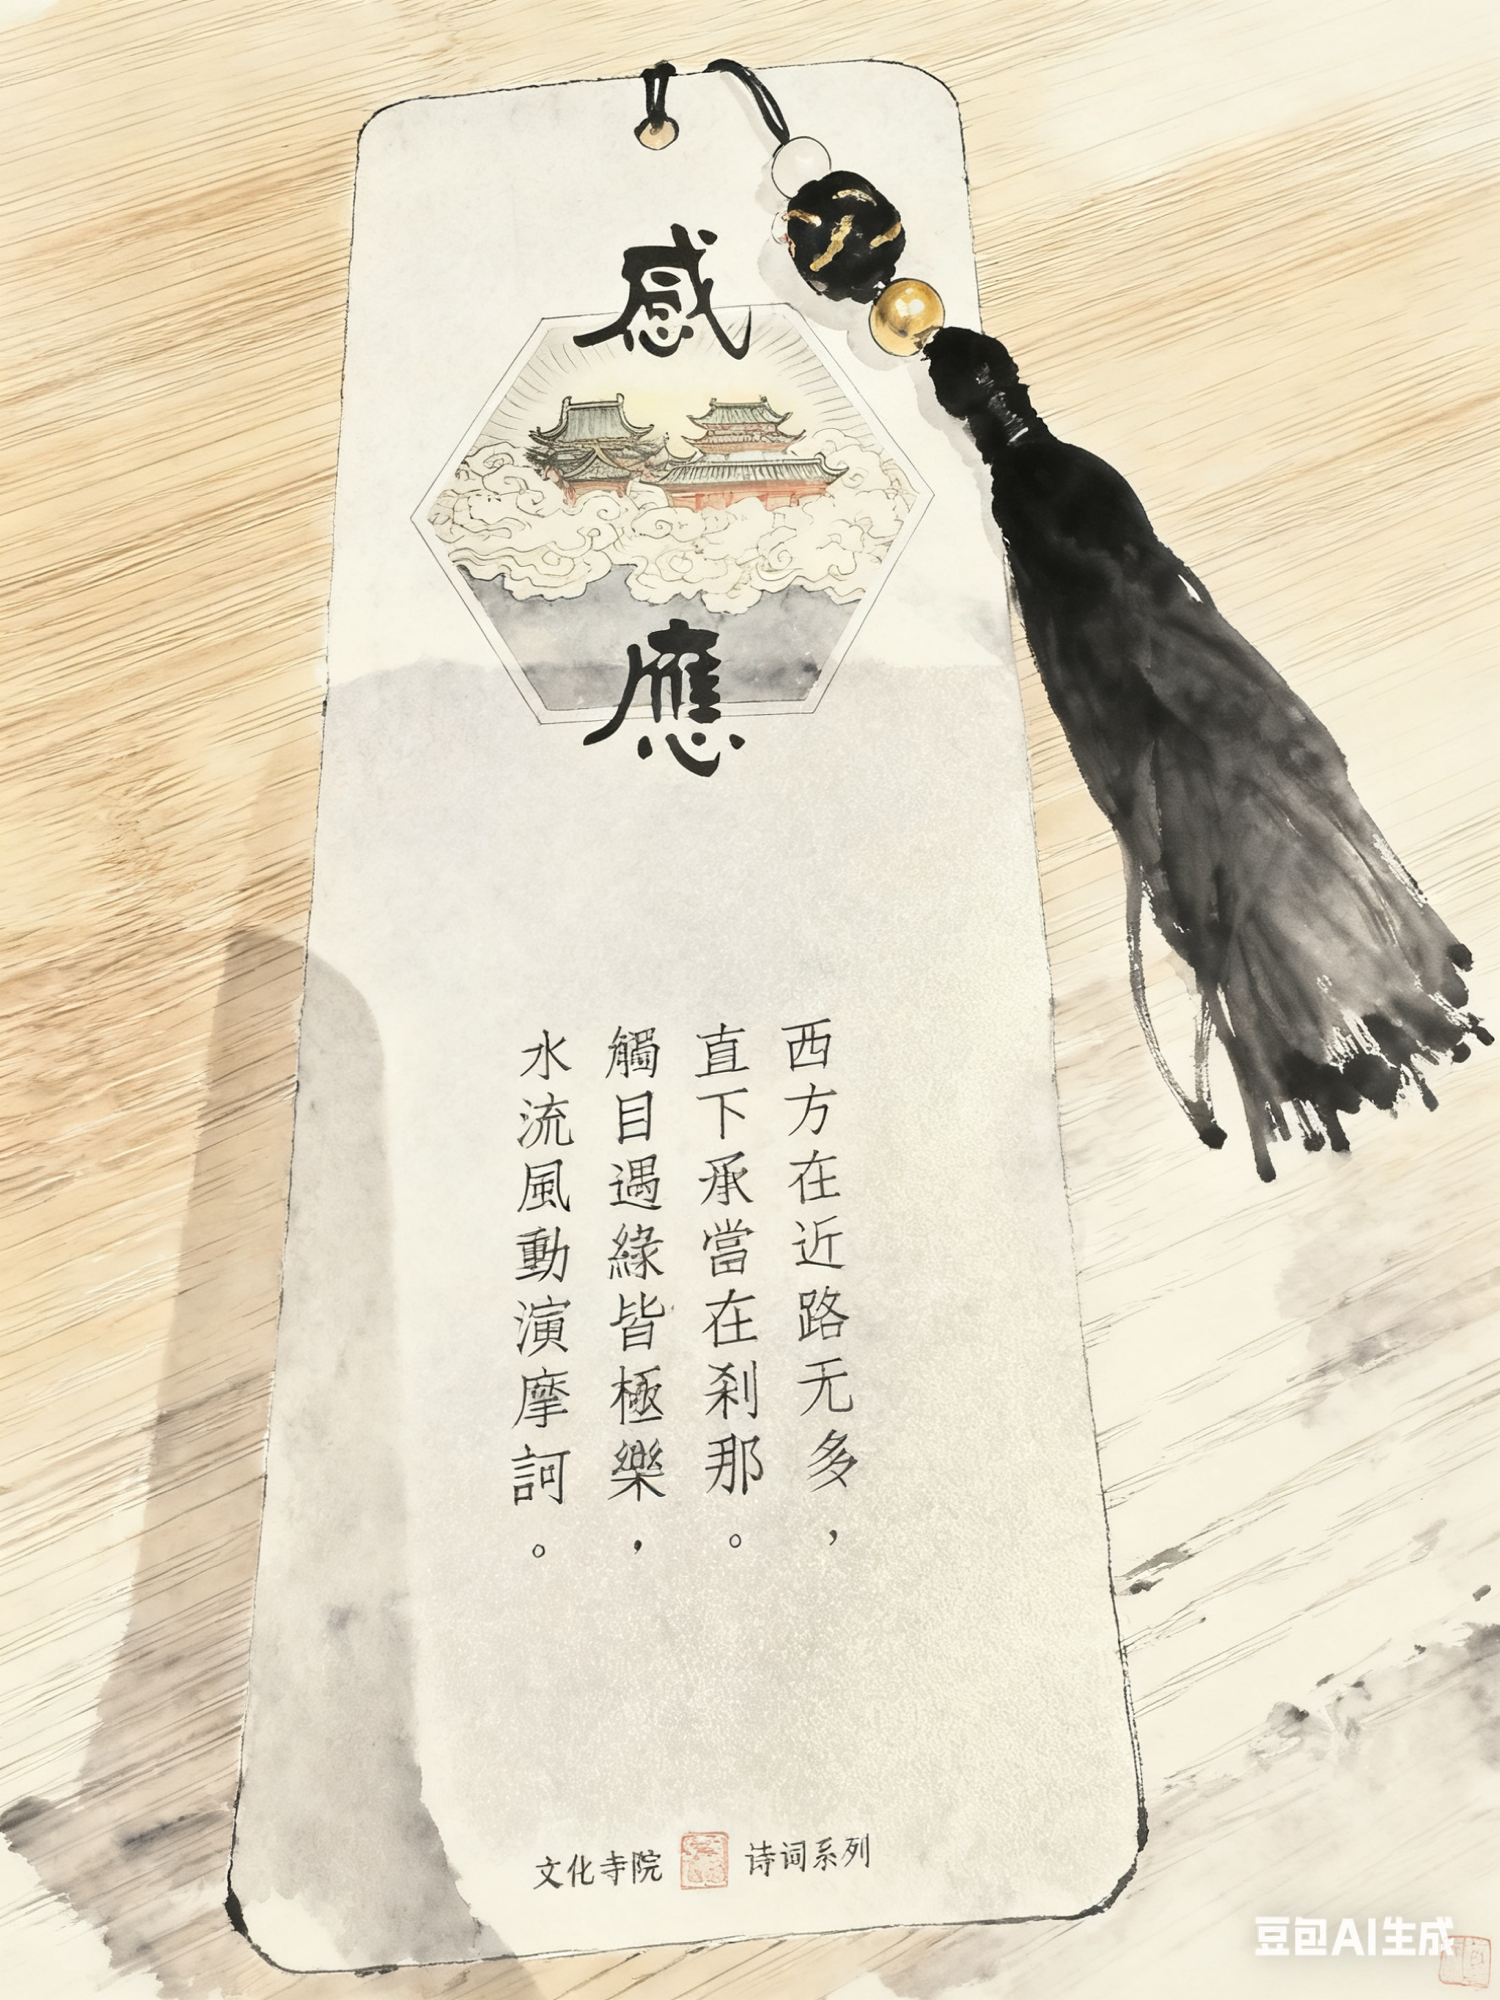 感
應
西方在近路无多，
直下承當在剎那。
觸目遇緣皆極樂，
水流風動演摩訶。
文化寺院 诗词系列
豆包AI生成